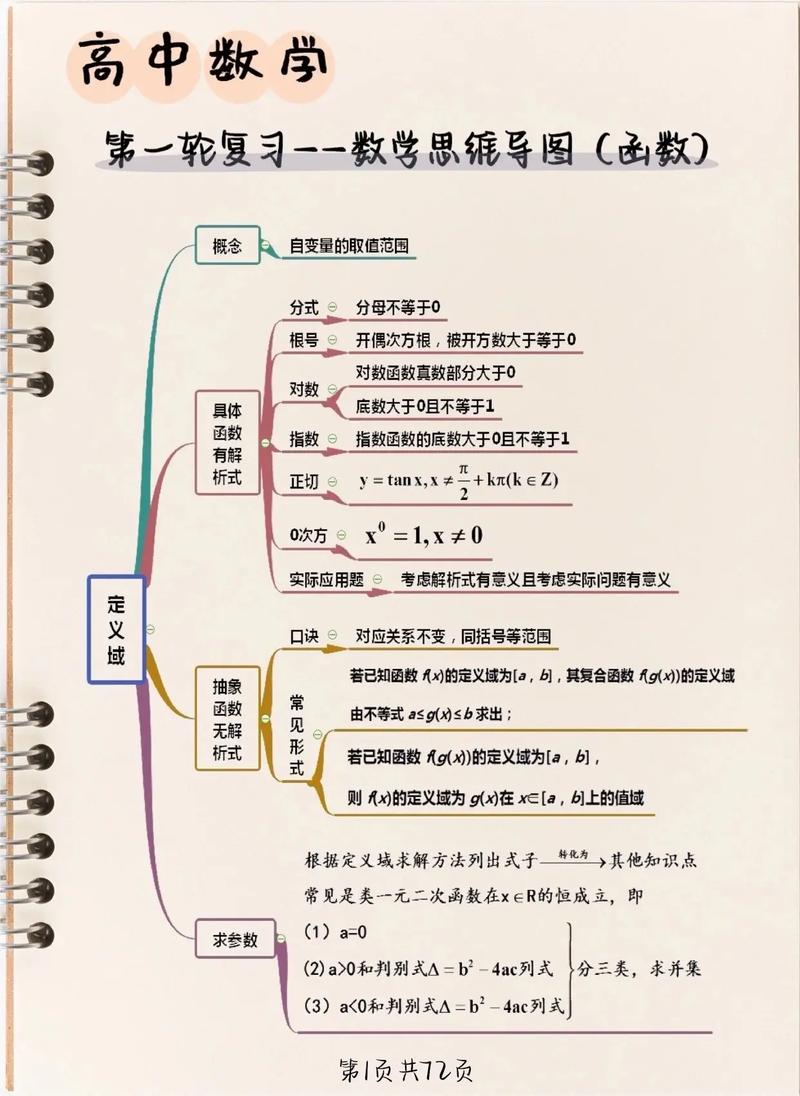 高中数学
第一轮复习--数学思维导图（函数）
定义域
概念
自变量的取值范围
具体
函数
有解
析式
分式
分母不等于0
根号
开偶次方根，被开方数大于等于0
对数
对数函数真数部分大于0
底数大于0且不等于1
指数
指数函数的底数大于0且不等于1
正切
y = tan x, x ≠ π/2 + kπ(k ∈ Z)
0次方
x⁰ = 1, x ≠ 0
实际应用题
考虑解析式有意义且考虑实际问题有意义
抽象
函数
无解
析式
口诀
对应关系不变，同括号等范围
常见形式
若已知函数 f(x)的定义域为[a，b]，其复合函数 f(g(x))的定义域
由不等式 a≤g(x)≤b 求出；
若已知函数 f(g(x))的定义域为[a，b]，
则 f(x)的定义域为 g(x)在 x∈[a，b]上的值域
求参数
根据定义域求解方法列出式子 转化为→其他知识点
常见是类一元二次函数在x∈R的恒成立，即
（1）a=0
(2)a>0和判别式Δ = b² − 4ac列式
（3）a<0和判别式Δ = b² − 4ac列式
分三类，求并集
第1页共72页